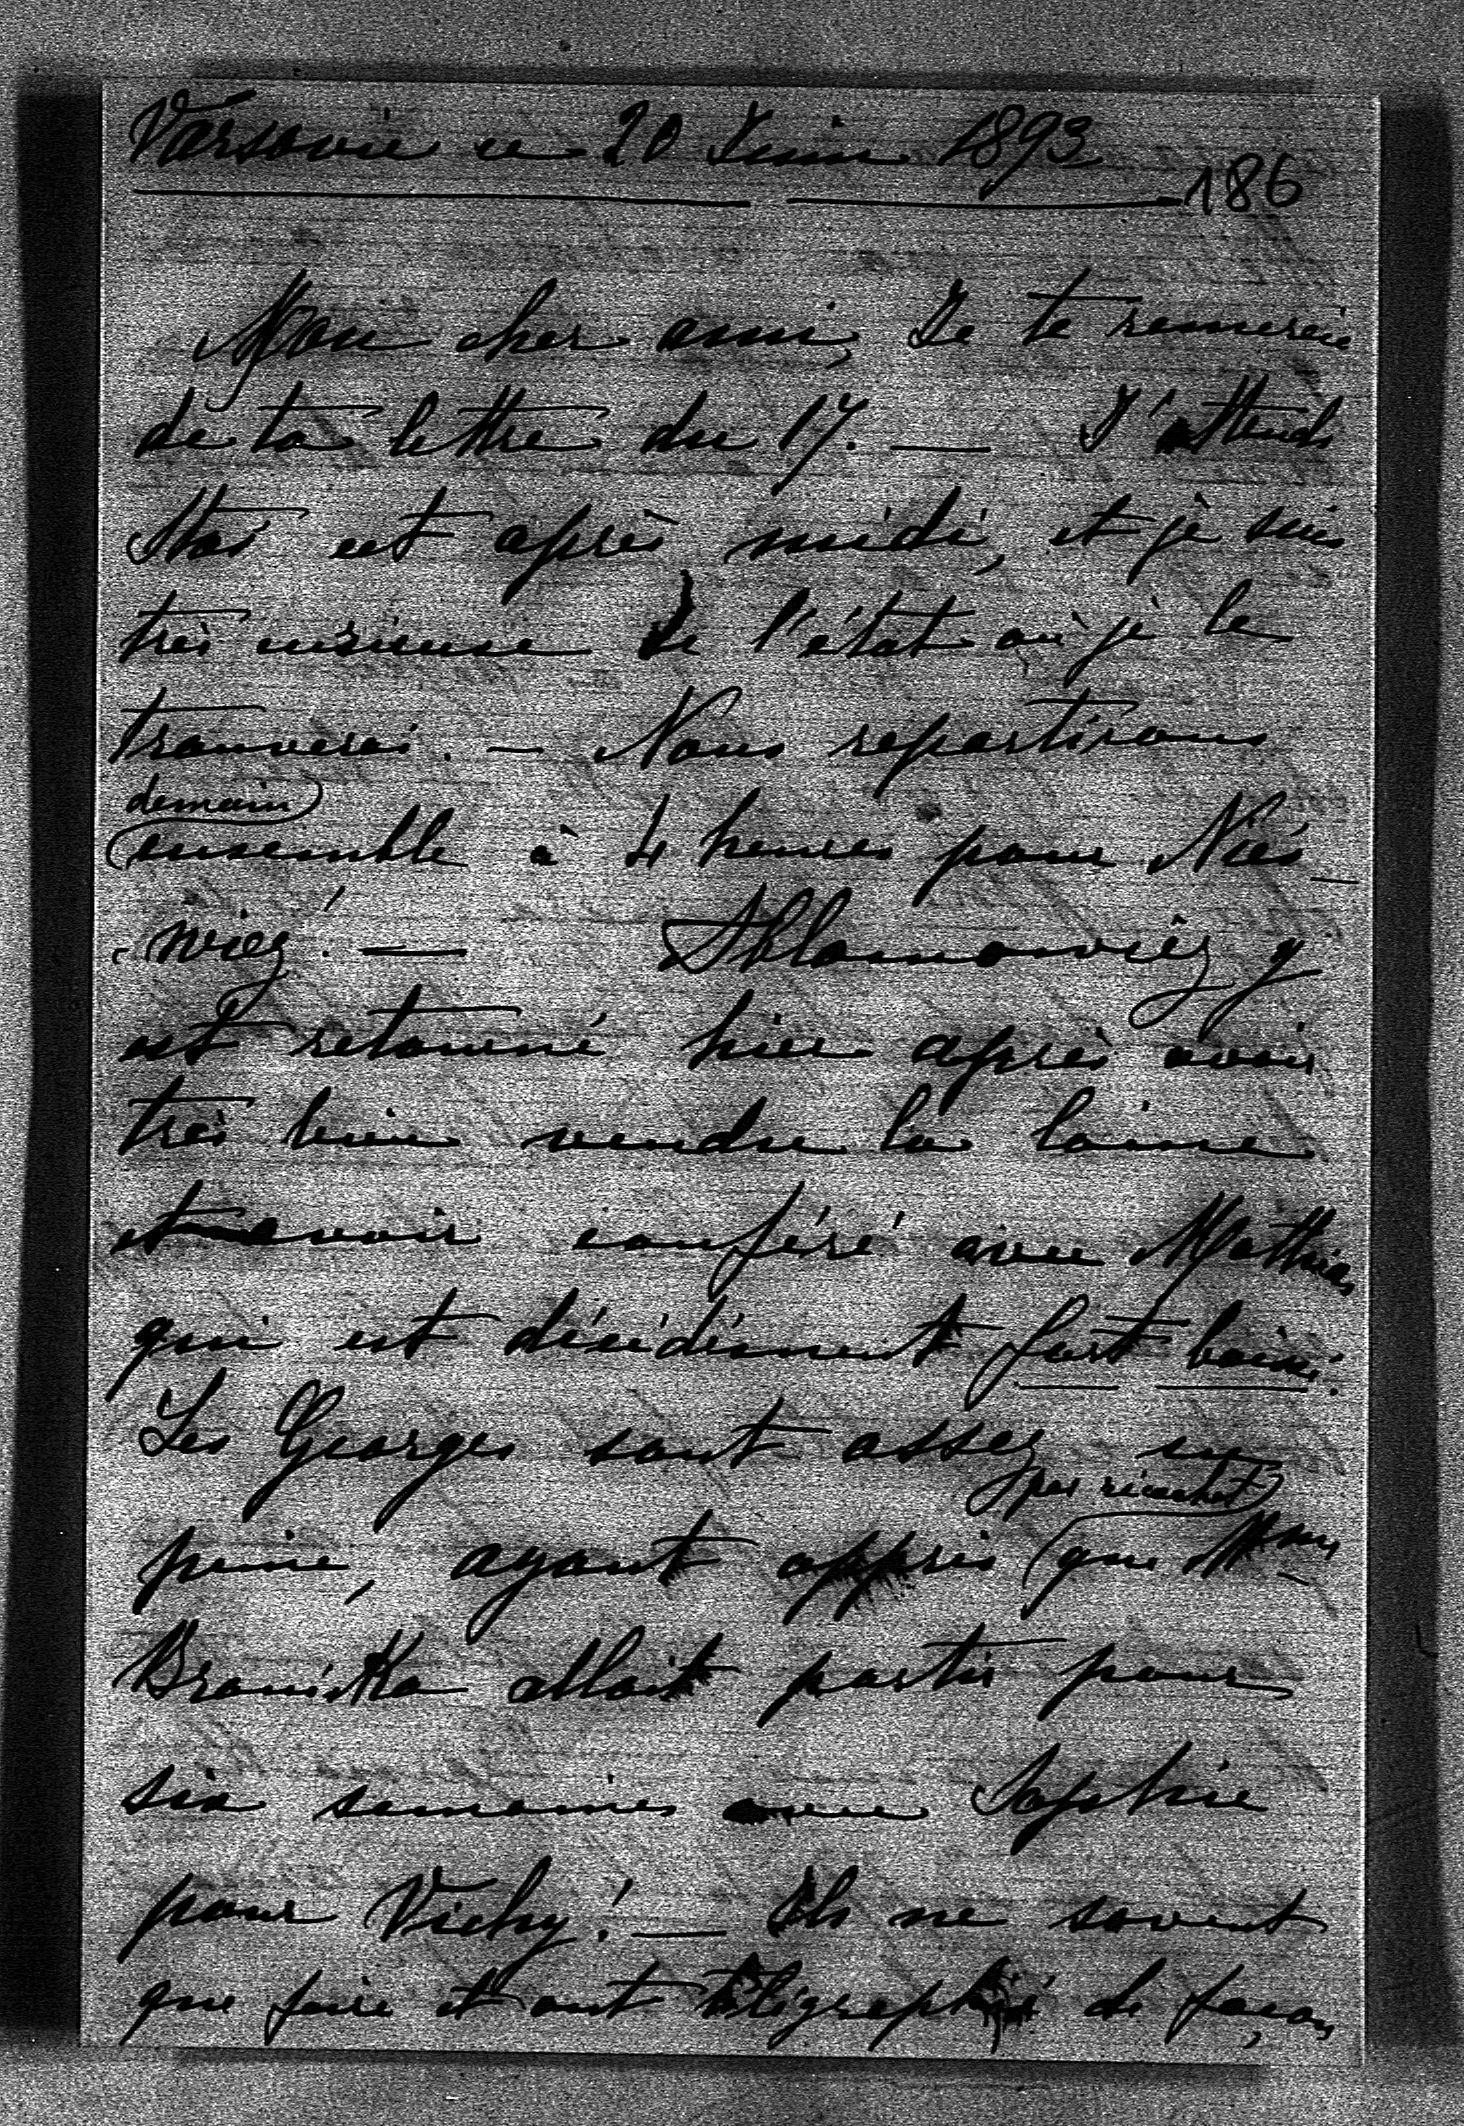 Varsovie ce 20 Juin 1893
186
Mon cher ami, Je te remercie
de ta lettre du 17. — J'attends
Staś cet après midi, et je suis
très curieuse de l'état où je le
trouverai. — Nous repartirons
demain
ensemble à 4 heures pour Nieś-
-wież! — Abłamowicz y
est retourné hier après avoir
très bien vendu la laine
et avoir conféré avec Mathias
qui est décidément fort baissé.
Les Georges sont assez en
par ricochet
peine, ayant appris que Mme
Branicka allait partir pour
six semaines avec Sophie
pour Vichy! — Ils ne savent
que faire et ont télégraphié de façon